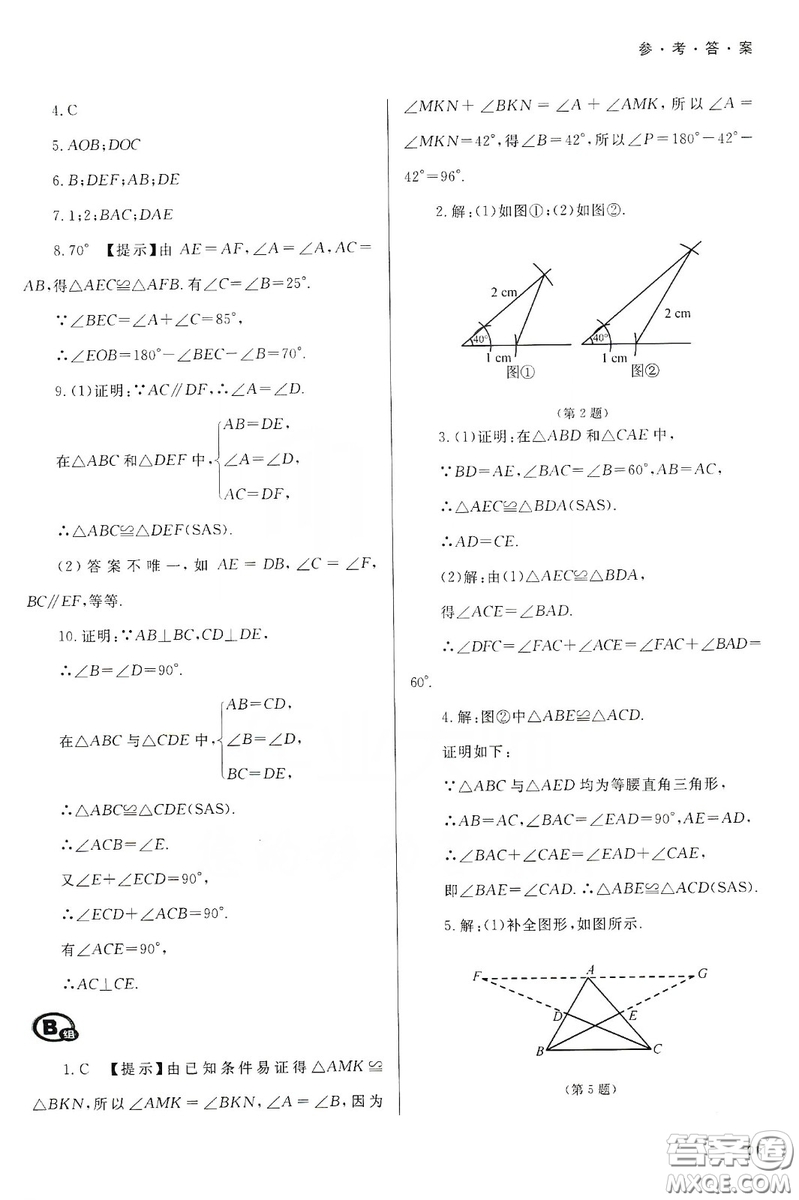 参·考·答·案
4.C
5.AOB;DOC
6.B;DEF;AB;DE
7.1;2;BAC;DAE
8.70° 【提示】由 AE=AF,∠A=∠A,AC=
AB,得△AEC≌△AFB.有∠C=∠B=25°.
∵∠BEC=∠A+∠C=85°,
∴∠EOB=180°-∠BEC-∠B=70°.
9.(1)证明:∵AC∥DF,∴∠A=∠D.
AB=DE,
在△ABC 和△DEF 中,{∠A=∠D,
AC=DF,
∴△ABC≌△DEF(SAS).
(2)答案不唯一,如 AE=DB,∠C=∠F,
BC∥EF,等等.
10.证明:∵AB⊥BC,CD⊥DE,
∴∠B=∠D=90°.
AB=CD,
在△ABC 与△CDE 中,{∠B=∠D,
BC=DE,
∴△ABC≌△CDE(SAS).
∴∠ACB=∠E.
又∠E+∠ECD=90°,
∴∠ECD+∠ACB=90°.
有∠ACE=90°,
∴AC⊥CE.
B组
1.C 【提示】由已知条件易证得△AMK≌
△BKN,所以∠AMK=∠BKN,∠A=∠B,因为
∠MKN+∠BKN=∠A+∠AMK,所以∠A=
∠MKN=42°,得∠B=42°,所以∠P=180°-42°-
42°=96°.
2.解:(1)如图①;(2)如图②.
2 cm
40°
1 cm
图①
2 cm
40°
1 cm
图②
(第2题)
3.(1)证明:在△ABD 和△CAE 中,
∵BD=AE,∠BAC=∠B=60°,AB=AC,
∴△AEC≌△BDA(SAS).
∴AD=CE.
(2)解:由(1)△AEC≌△BDA,
得∠ACE=∠BAD.
∴∠DFC=∠FAC+∠ACE=∠FAC+∠BAD=
60°.
4.解:图②中△ABE≌△ACD.
证明如下:
∵△ABC 与△AED 均为等腰直角三角形,
∴AB=AC,∠BAC=∠EAD=90°,AE=AD,
∴∠BAC+∠CAE=∠EAD+∠CAE,
即∠BAE=∠CAD.∴△ABE≌△ACD(SAS).
5.解:(1)补全图形,如图所示.
F A G
D E
B C
(第5题)
答案圈
MXQE.COM